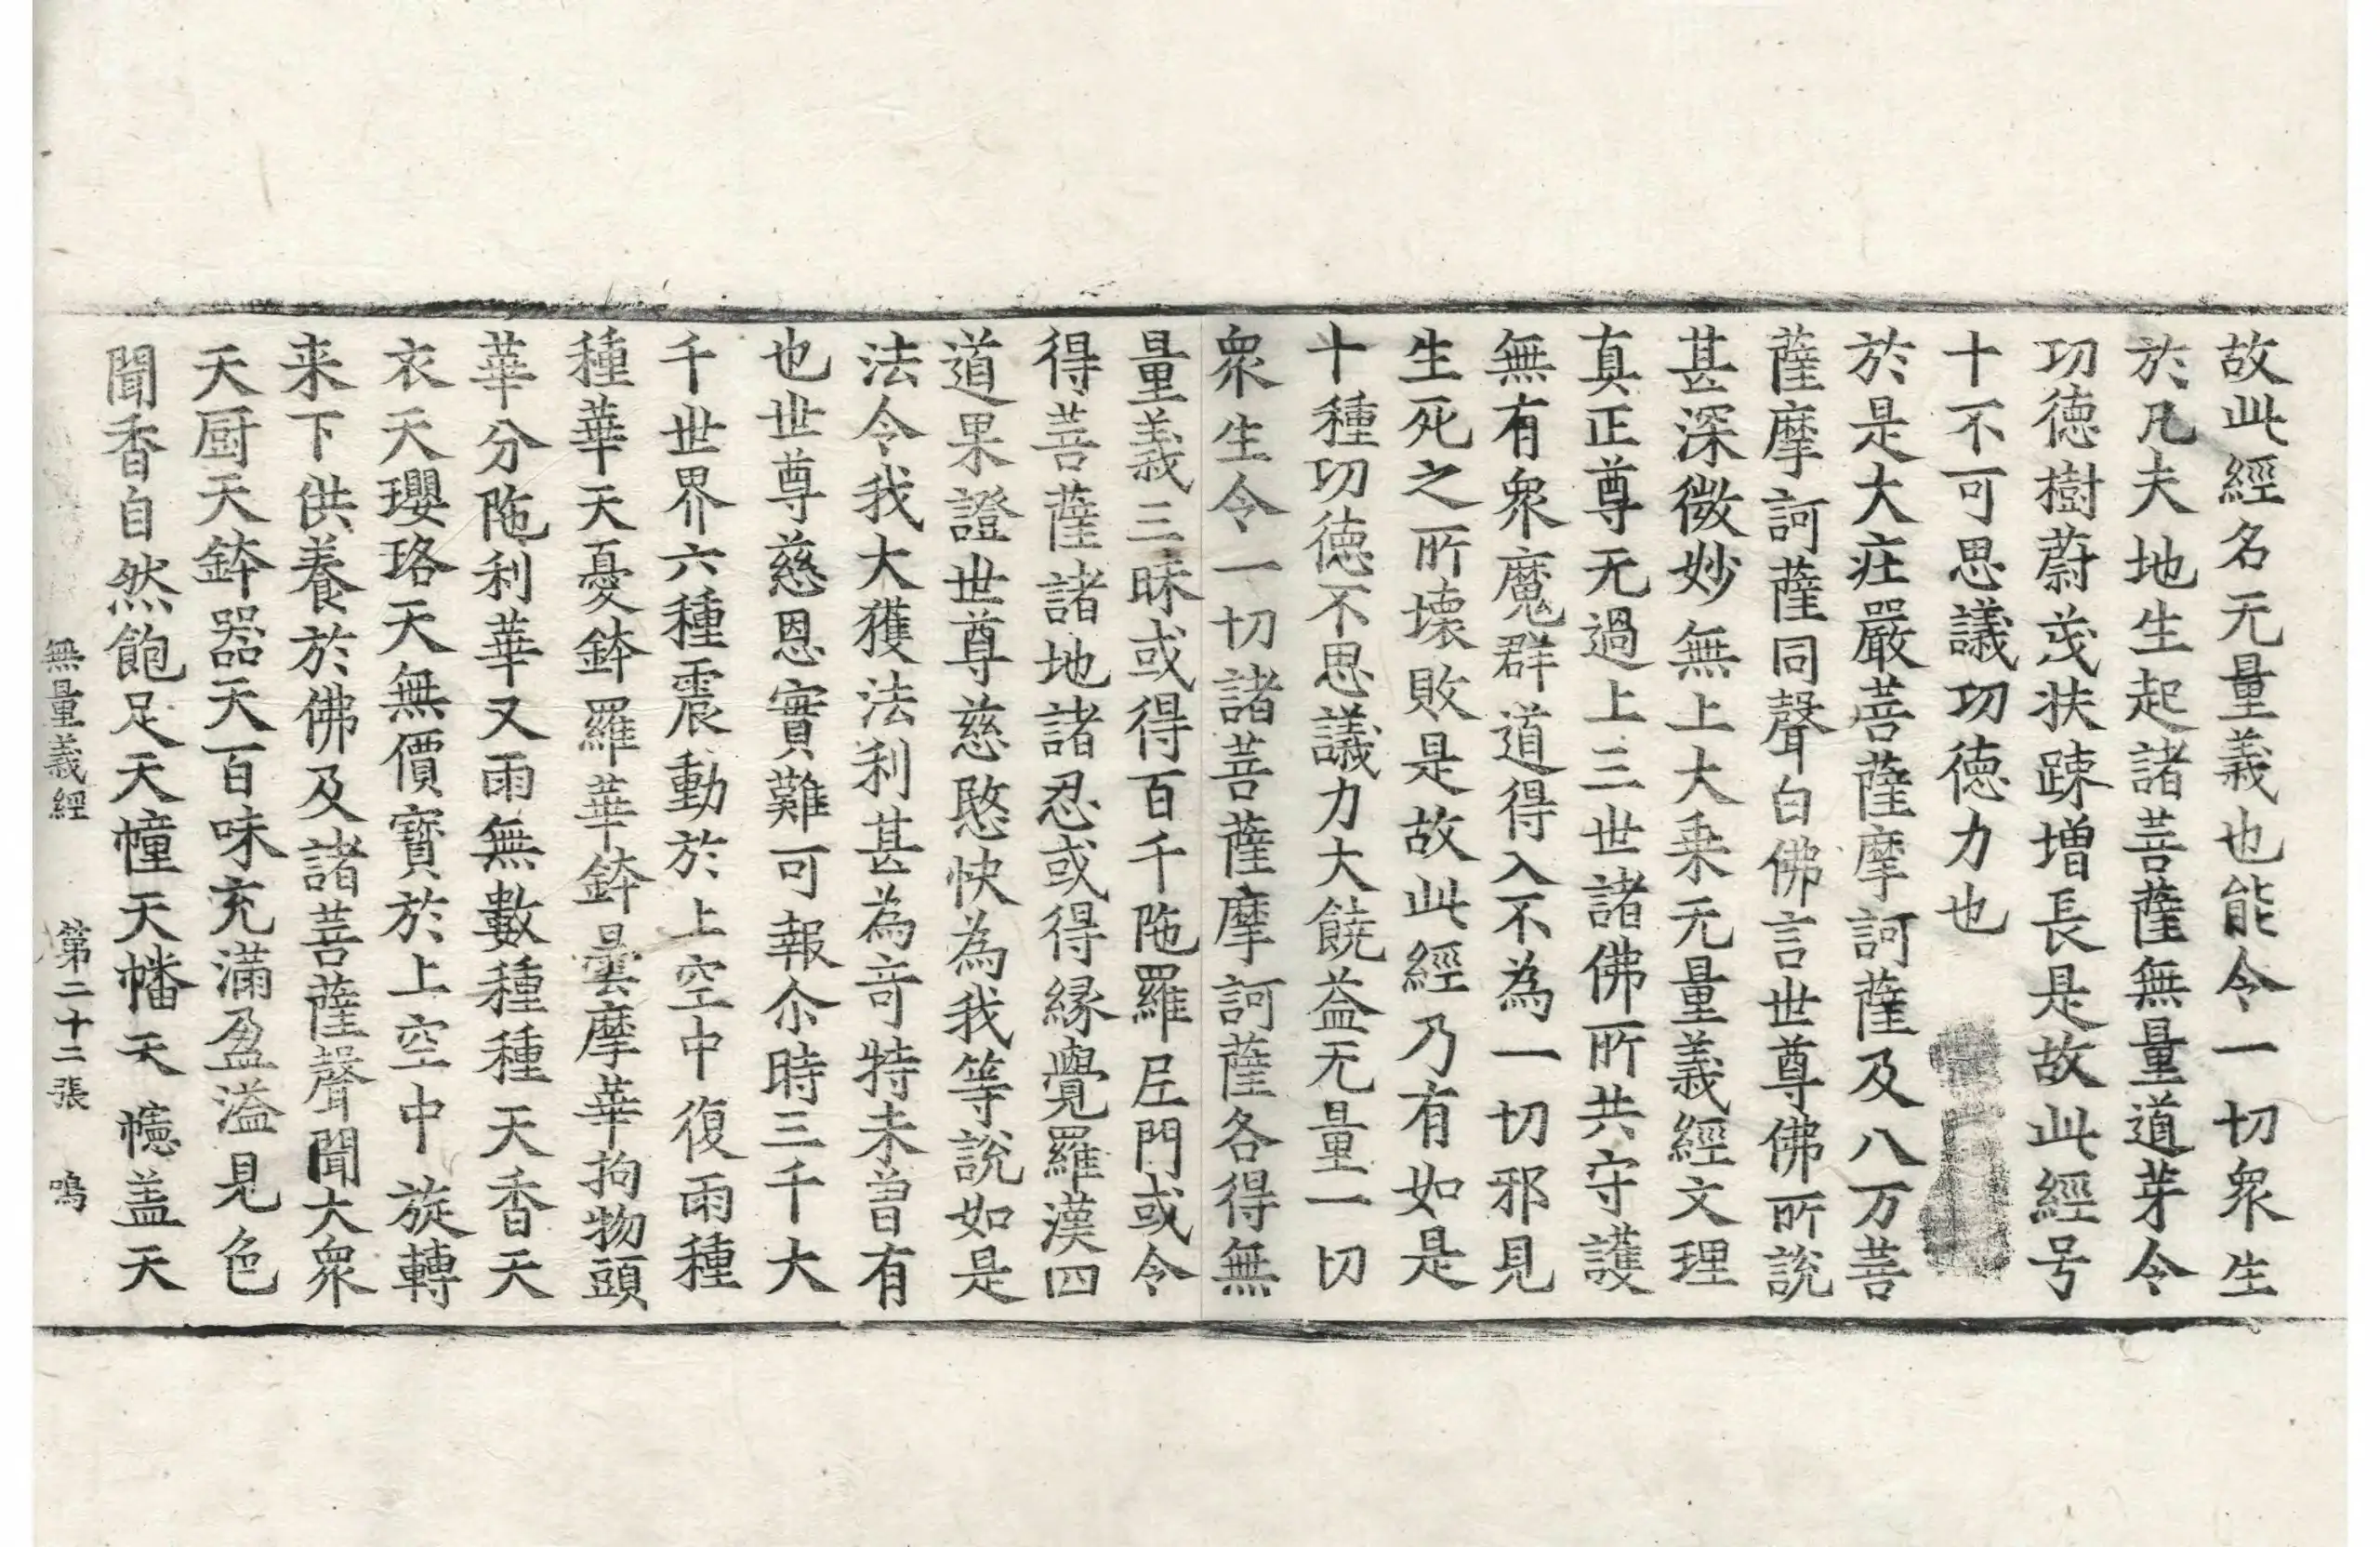 故此經名无量義也能令一切衆生
於凡夫地生起諸菩薩無量道芽令
功德樹蔚茂扶踈增長是故此經号
十不可思議功德力也
於是大㽵嚴菩薩摩訶薩及八万菩
薩摩訶薩同聲白佛言世尊佛所說
甚深微妙無上大乘无量義經文理
真正尊无過上三世諸佛所共守護
無有衆魔群道得入不為一切邪見
生死之所壞敗是故此經乃有如是
十種功德不思議力大饒益无量一切
衆生令一切諸菩薩摩訶薩各得無
量義三昧或得百千陁羅尼門或令
得菩薩諸地諸忍或得縁覺羅漢四
道果證世尊慈愍快為我等說如是
法令我大獲法利甚為竒特未曾有
也世尊慈恩實難可報尒時三千大
千世界六種震動於上空中復雨種
種華天憂鉢羅華鉢曇摩華拘物頭
華分陁利華又雨無數種種天香天
衣天瓔珞天無價寶於上空中旋轉
来下供養於佛及諸菩薩聲聞大衆
天厨天鉢器天百味充滿盈溢見色
聞香自然飽足天幢天幡天幰盖天
無量義經 第二十二張 鳴